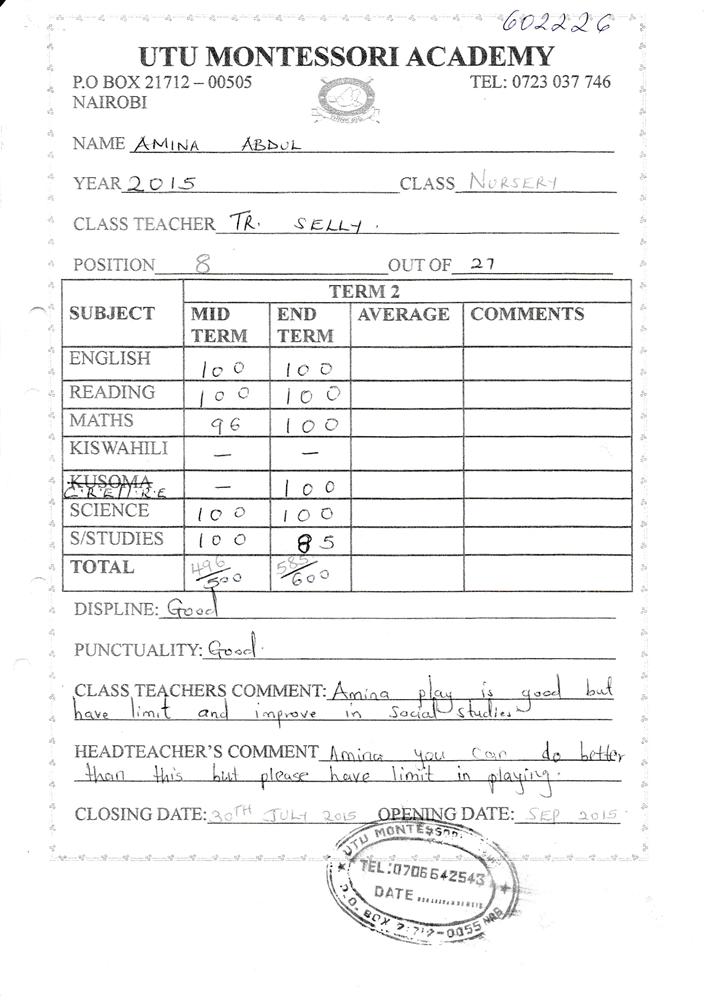 602226
UTU MONTESSORI ACADEMY
P.O BOX 21712 – 00505 TEL: 0723 037 746
NAIROBI
NAME AMINA ABDUL
YEAR 2015 CLASS NURSERY
CLASS TEACHER TR. SELLY.
POSITION 8 OUT OF 27
SUBJECT TERM 2
MID TERM END TERM AVERAGE COMMENTS
ENGLISH 100 100
READING 100 100
MATHS 96 100
KISWAHILI — —
KUSOMA — 100
SCIENCE 100 100
S/STUDIES 100 85
TOTAL 496/500 585/600
DISPLINE: Good
PUNCTUALITY: Good.
CLASS TEACHERS COMMENT: Amina play is good but
have limit and improve in Social studies
HEADTEACHER'S COMMENT Amina you can do better
than this but please have limit in playing.
CLOSING DATE: 30TH JULY 2015 OPENING DATE: SEP 2015.
UTU MONTESSORI
TEL:0706642543
DATE..............
P.O. BOX 21712-0055 NRB